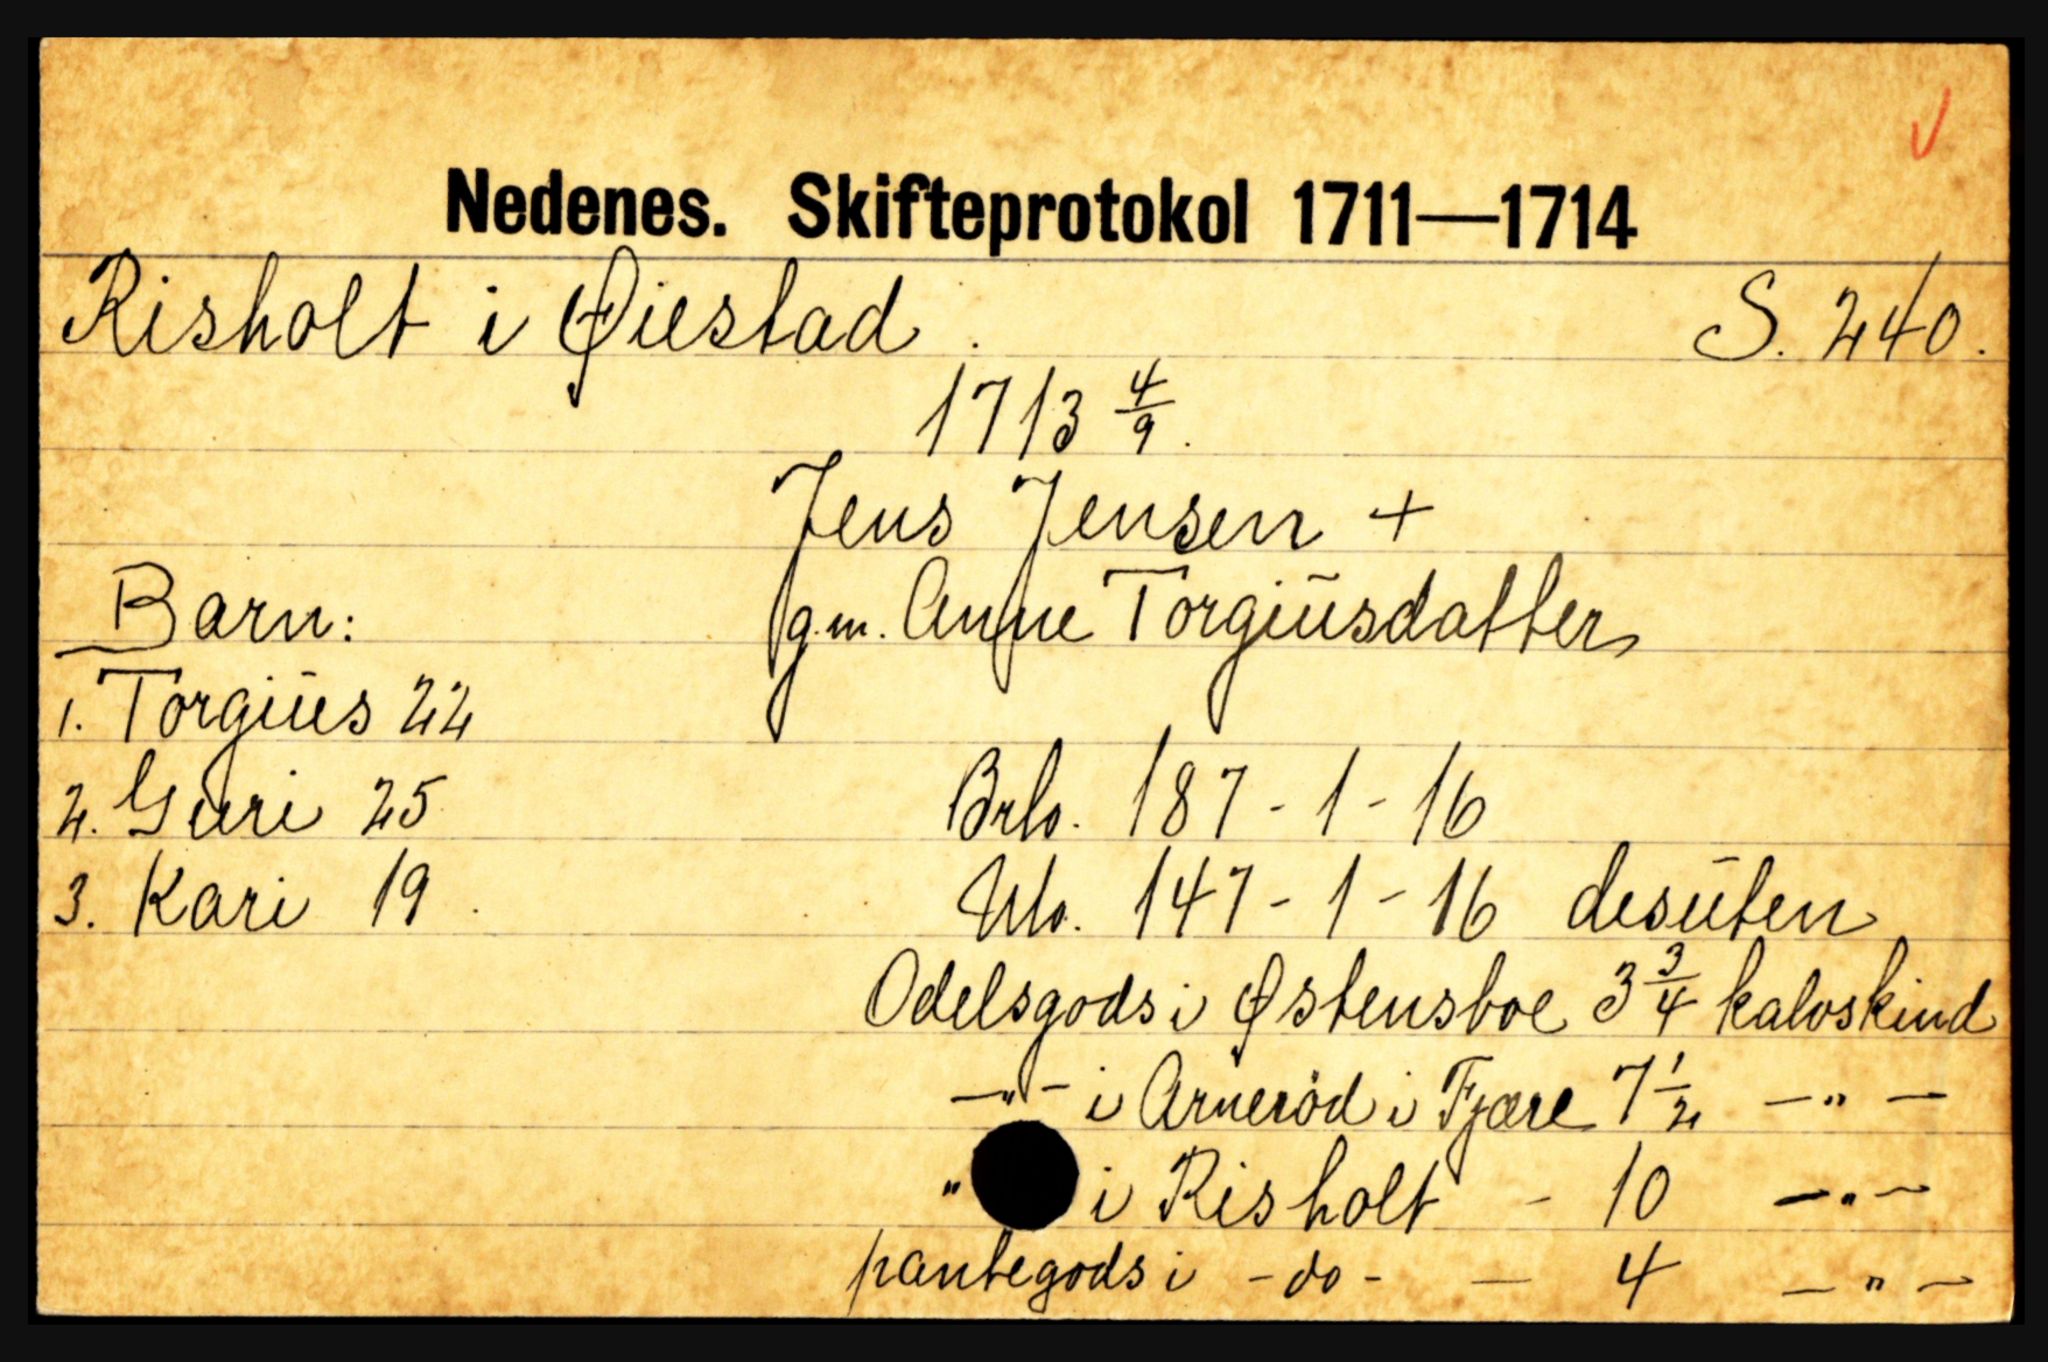 Nedenes. Skifteprotokol 1711—1714
Risholt i Øiestad. S. 240.
1713 4/9.
Jens Jensen +
g.m. Anne Torgiusdatter
Barn:
1. Torgius 22
2. Guri 25
3. Kari 19.
Brlo. 187 - 1 - 16
Nlo. 147 - 1 - 16 desuten
Odelsgods i Østensboe 3 3/4 kalvskind
—"— i Arneröd i Fjære 7 1/2 —"—
" i Risholt - 10 —"—
pantegods i - do - — 4 —"—